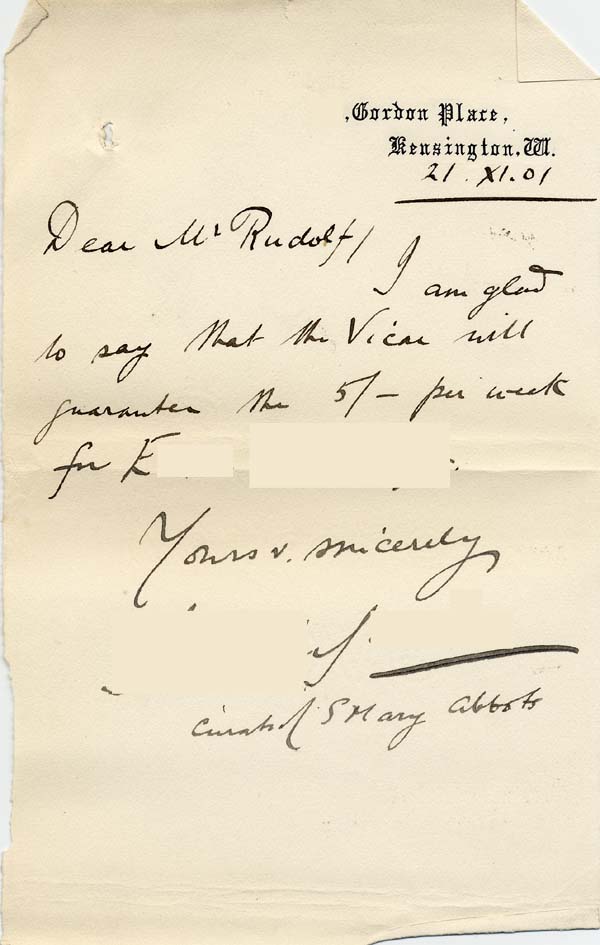 ,Gordon Place,
Kensington. W.
21. XI. 01
Dear Mr Rudolf/
I am glad
to say that the Vicar will
guarantee the 5/- per week
for E
Yours v. sincerely
Curate of S Mary Abbots